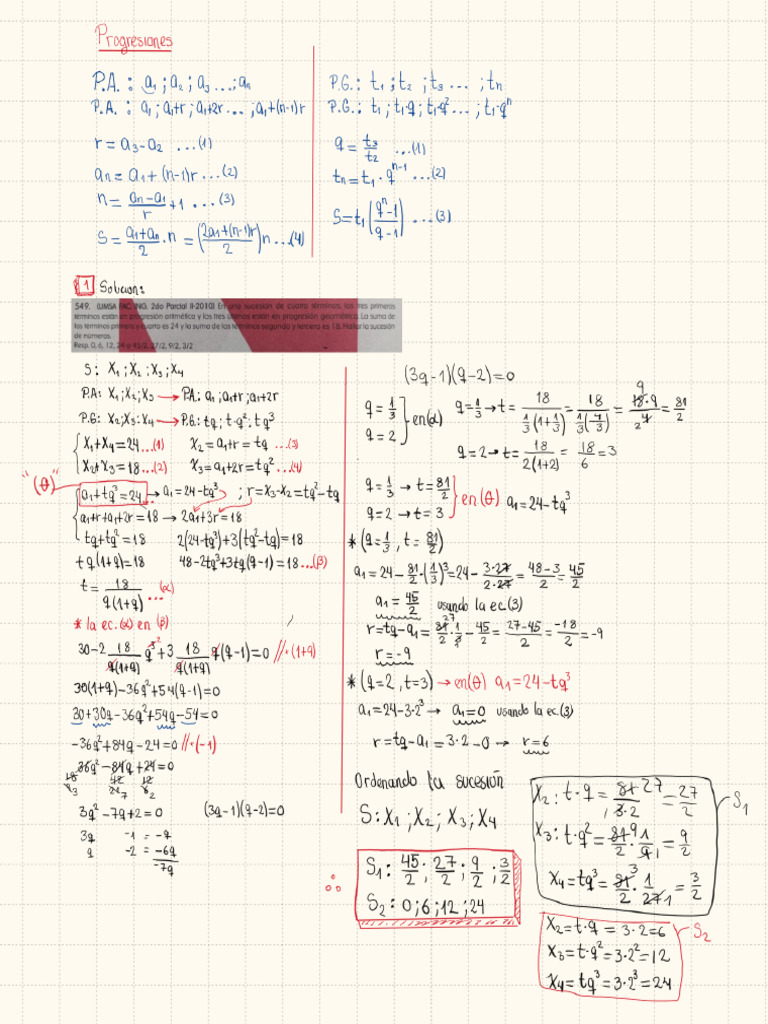 Progresiones
P.A.: a₁ ; a₂ ; a₃ ... ; aₙ
P.A.: a₁ ; a₁+r ; a₁+2r ... ; a₁+(n-1)r
r = a₃-a₂ ...(1)
aₙ = a₁ + (n-1)r ...(2)
n = (aₙ-a₁)/r + 1 ...(3)
S = (a₁+aₙ)/2 · n = ((2a₁+(n-1)r)/2)n ...(4)
P.G.: t₁ ; t₂ ; t₃ ... ; tₙ
P.G.: t₁ ; t₁·q ; t₁·q² ... ; t₁·qⁿ
q = t₃/t₂ ...(1)
tₙ = t₁·qⁿ⁻¹ ...(2)
S = t₁((qⁿ-1)/(q-1)) ...(3)
1 Solucion:
549. (UMSA FAC. ING. 2do Parcial II-2010) En una sucesión de cuatro términos, los tres primeros
términos están en progresión aritmética y los tres últimos están en progresión geométrica. La suma de
los términos primero y cuarto es 24 y la suma de los términos segundo y tercero es 18. Hallar la sucesión
de números.
Resp. 0, 6, 12, 24 o 45/2, 27/2, 9/2, 3/2
S: x₁ ; x₂ ; x₃ ; x₄
P.A: x₁ ; x₂ ; x₃ → P.A: a₁ ; a₁+r ; a₁+2r
P.G: x₂ ; x₃ ; x₄ → P.G: tq ; t·q² ; tq³
x₁+x₄=24 ...(1) x₂=a₁+r=tq ...(3)
x₂+x₃=18 ...(2) x₃=a₁+2r=tq² ...(4)
"(θ)"
a₁+tq³=24 → a₁=24-tq³ ; r=x₃-x₂=tq²-tq
a₁+r+a₁+2r=18 → 2a₁+3r=18
tq+tq²=18 2(24-tq³)+3(tq²-tq)=18
tq(1+q)=18 48-2tq³+3tq(q-1)=18 ...(β)
t = 18/(q(1+q)) ...(α)
* la ec.(α) en (β)
30-2 18/(q(1+q)) q³² +3 18/(q(1+q)) q(q-1)=0 //·(1+q)
30(1+q)-36q²+54(q-1)=0
30+30q-36q²+54q-54=0
-36q²+84q-24=0 //·(-1)
36q²-84q+24=0
18 42 12
3 21 7 6 2
3q²-7q+2=0 (3q-1)(q-2)=0
3q -1 = -q
q -2 = -6q
-7q
(3q-1)(q-2)=0
q=1/3
q=2 } en(α)
q=1/3 → t = 18/(1/3(1+1/3)) = 18/(1/3(4/3)) = 18·9/4 = 81/2
9
2
q=2 → t = 18/(2(1+2)) = 18/6 = 3
q=1/3 → t=81/2
q=2 → t=3 } en(θ) a₁=24-tq³
* (q=1/3, t=81/2)
a₁=24-81/2·(1/3)³=24-3·27/2·27=48-3/2=45/2
a₁=45/2 usando la ec.(3)
r=tq-a₁=81/2·1/3-45/2=27-45/2=-18/2=-9
27
r=-9
* (q=2, t=3) → en(θ) a₁=24-tq³
a₁=24-3·2³ → a₁=0 usando la ec.(3)
r=tq-a₁=3·2-0 → r=6
Ordenando la sucesión
S: x₁ ; x₂ ; x₃ ; x₄
∴ S₁: 45/2 ; 27/2 ; 9/2 ; 3/2
S₂: 0 ; 6 ; 12 ; 24
x₂: t·q = 81 27/3·2 = 27/2 S₁
x₃: t·q² = 81 9/2 · 1/9 1 = 9/2
x₄=tq³ = 81 3/2 · 1/27 1 = 3/2
x₂=t·q=3·2=6 S₂
x₃=t·q²=3·2²=12
x₄=tq³=3·2³=24